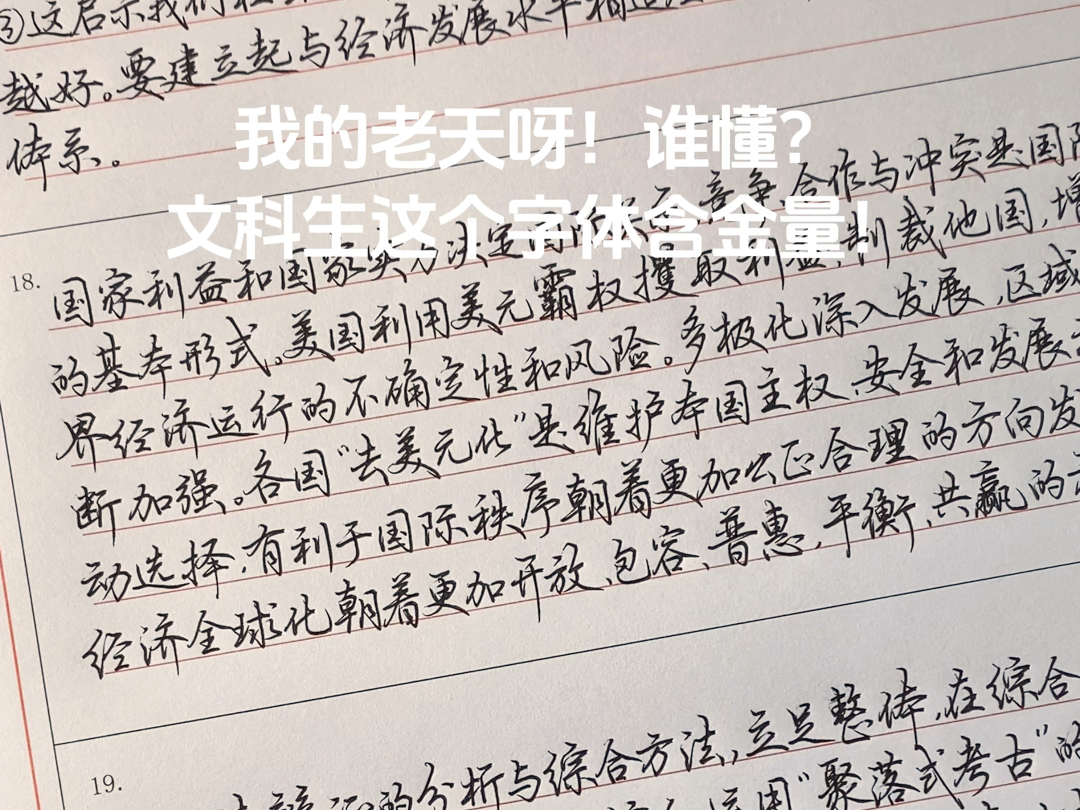 ③这启示我们
与经济发展水平相适
越好。要建立起
体系。
我的老天呀！谁懂？
文科生这个字体含金量！
18.
国家利益和国家实力决定国际关系,竞争、合作与冲突是国际
的基本形式。美国利用美元霸权攫取利益,制裁他国,增
界经济运行的不确定性和风险。多极化深入发展,区域
断加强。各国“去美元化”是维护本国主权、安全和发展
动选择,有利于国际秩序朝着更加公正合理的方向发
经济全球化朝着更加开放、包容、普惠,平衡,共赢的
19.
的分析与综合方法,立足整体,在综合
运用“聚落式考古”的